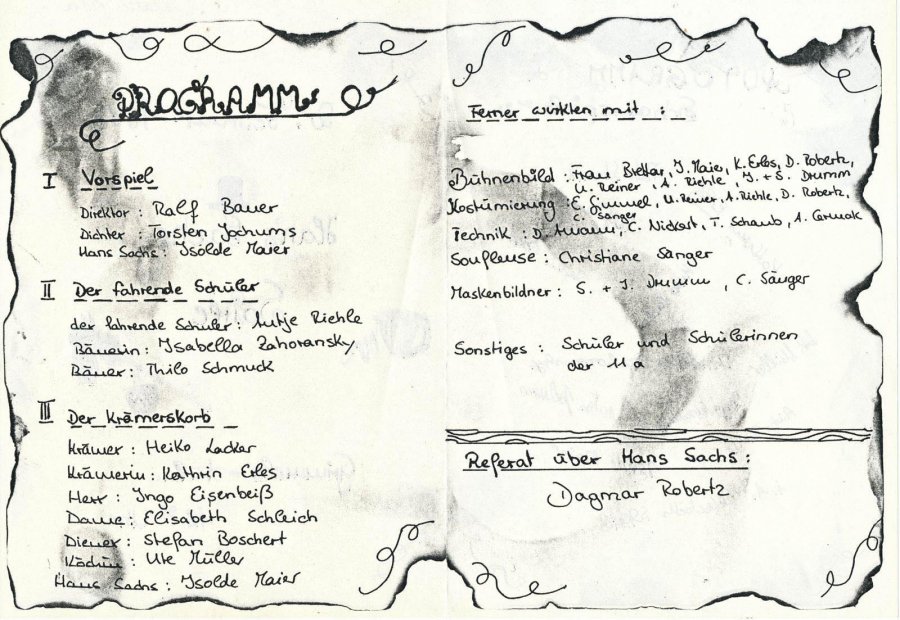 PROGRAMM
I Vorspiel
Direktor : Ralf Bauer
Dichter : Torsten Jochums
Hans Sachs : Isolde Maier
II Der fahrende Schüler
der fahrende Schüler : Antje Riehle
Bäuerin : Isabella Zahoransky
Bauer : Thilo Schmuck
III Der Krämerskorb
Krämer : Heiko Lacker
Krämerin : Kathrin Erles
Herr : Ingo Eisenbeiß
Dame : Elisabeth Schleich
Diener : Stefan Boschert
Köchin : Ute Müller
Hans Sachs : Isolde Maier
Ferner wirkten mit :
Bühnenbild : Frau J. Maier, K. Erles, D. Robertz,
U. Reiner, A. Riehle, J. + S. Drumm
Kostümierung : E. Gimmel, U. Reiner, A. Riehle, D. Robertz,
C. Sänger
Technik : D. C. Nickert, T. Schaub, A. Cermak
Soufleuse : Christiane Sänger
Maskenbildner : S. + J. Drumm , C. Sänger
Sonstiges : Schüler und Schülerinnen
der 11 a
Referat über Hans Sachs :
Dagmar Robertz